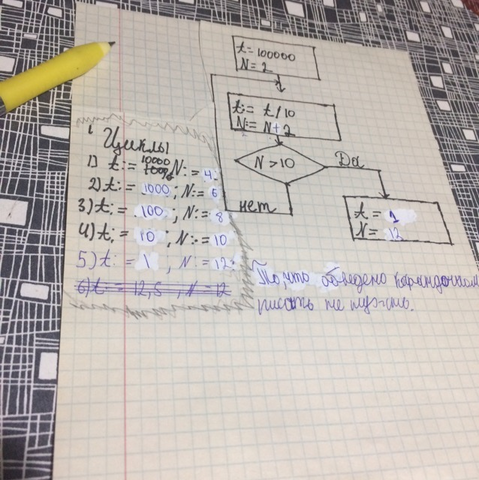 t=100000
N=2
t:= t/10
N:= N+2
N>10
Да
нет
t = 1
N = 12
Циклы
1) t:= 10000 N:= 4;
2) t:= 1000; N:= 6
3) t:= 100; N:= 8
4) t:= 10; N:= 10
5) t:= 1, N:= 12;
6) t = 12,5, N = 12
То, что обведено карандашом
писать не нужно.